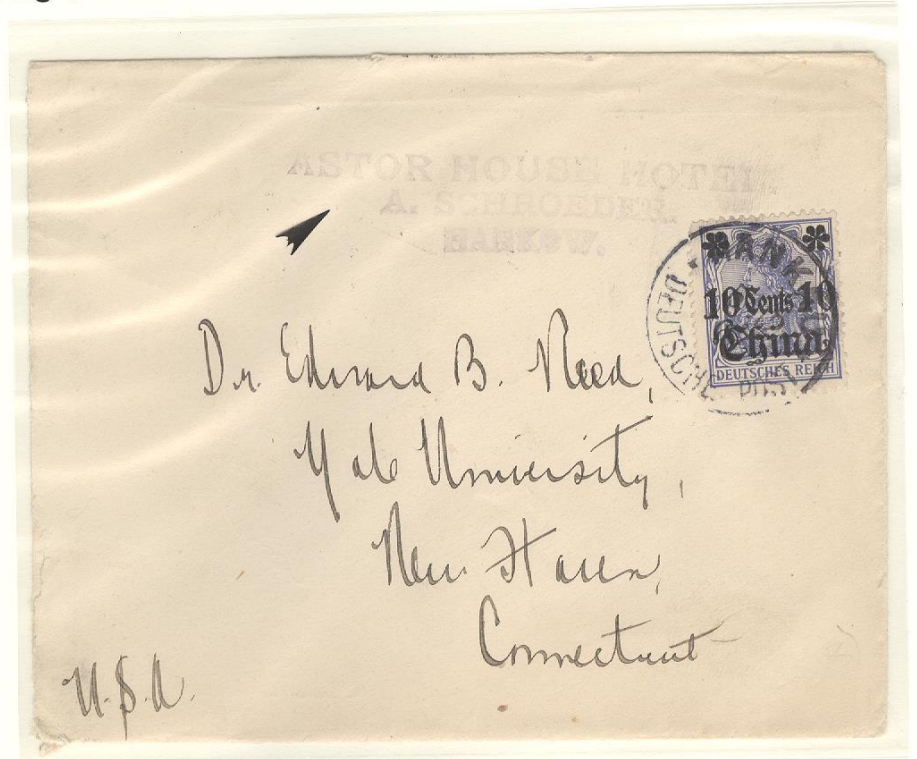 ASTOR HOUSE HOTEL
A. SCHROEDER.
HANKOW.
HANK
10 Cents 10
China
DEUTSCHES REICH
DEUTSCHE POST
Dr. Edward B. Reed,
Yale University,
New Haven,
Connecticut
U.S.A.